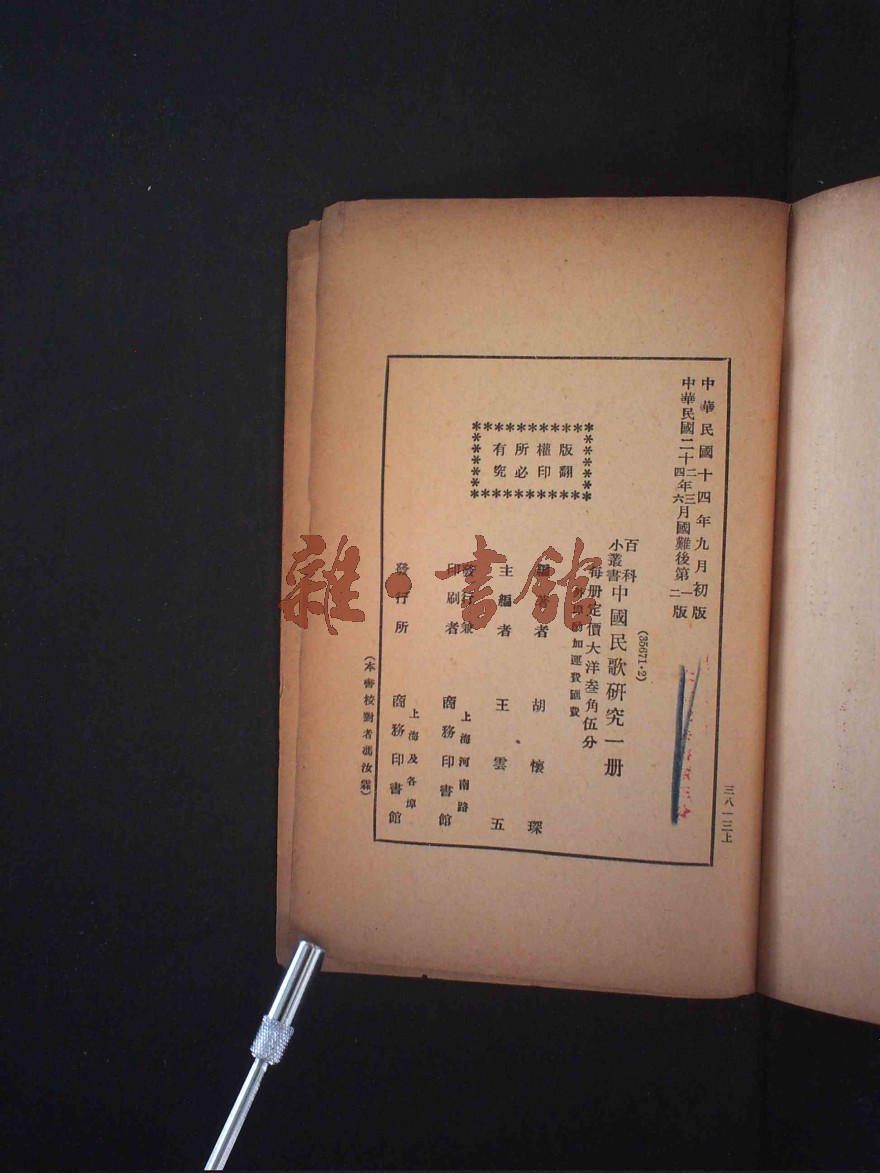 中華民國十四年九月初版
中華民國二十二四年三六月國難後第一二版
(35671·2)
百科小叢書中國民歌研究一册
每册定價大洋叁角伍分
外埠酌加運費匯費
編著者 胡懷琛
主編者 王雲五
發行兼印刷者 上海河南路 商務印書館
發行所 上海及各埠 商務印書館
版權所有
翻印必究
(本書校對者馮汝霖)
三八一三上
雜·書館